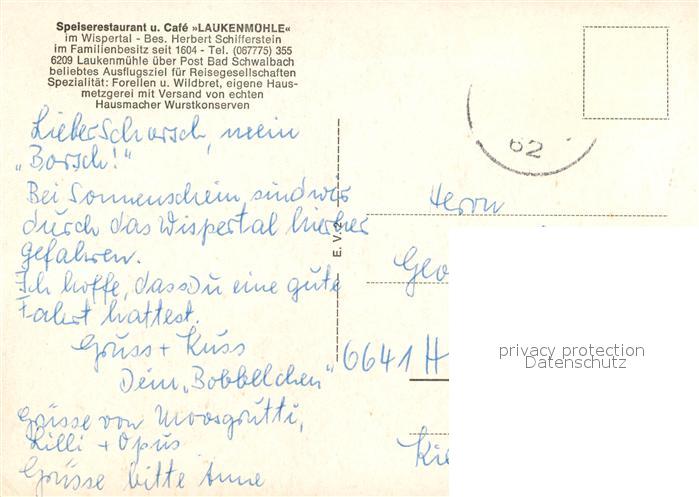 Speiserestaurant u. Café »LAUKENMÜHLE«
im Wispertal - Bes. Herbert Schifferstein
im Familienbesitz seit 1604 - Tel. (067775) 355
6209 Laukenmühle über Post Bad Schwalbach
beliebtes Ausflugsziel für Reisegesellschaften
Spezialität: Forellen u. Wildbret, eigene Haus-
metzgerei mit Versand von echten
Hausmacher Wurstkonserven
Lieber Schorsch, mein
„Borsch!"
Bei Sonnenschein sind wir
durch das Wispertal hierher
gefahren.
Ich hoffe, dass Du eine gute
Fahrt hattest.
Gruss + Kuss
Dein „Bobbelchen"
Grüsse von Moosgrutti,
Lilli + Opus
Grüsse bitte Anne
E. V. 2
62
Herrn
Geo
6641 H
Kie
privacy protection
Datenschutz